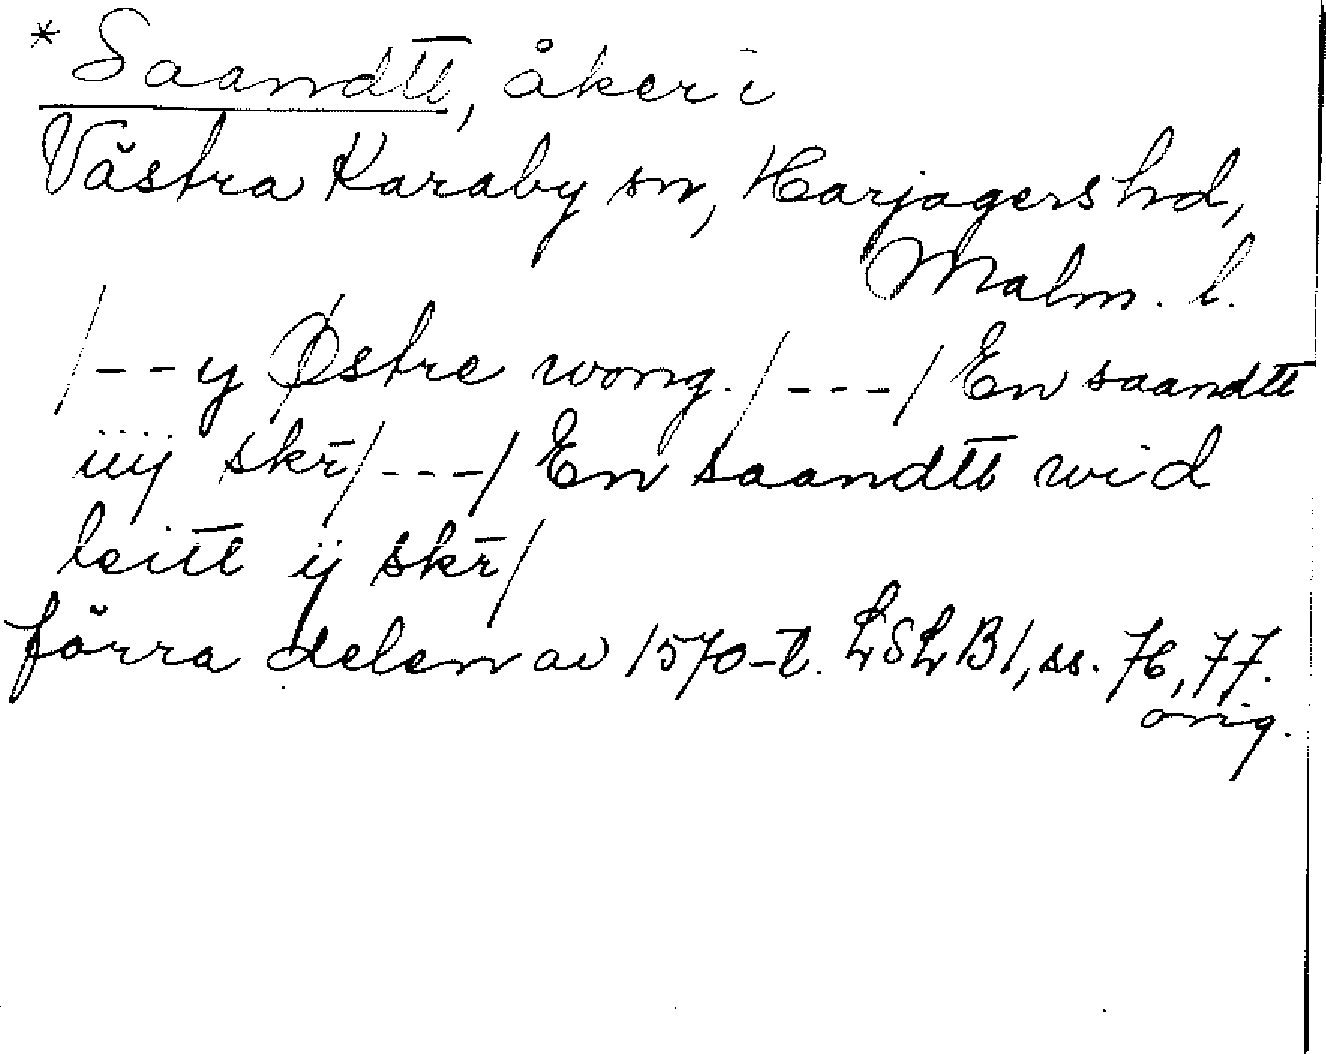 *Saandtt, åker i
Västra Karaby sn, Harjagers hd,
Malm. l.
/--y Østre wong./---/ En saandtt
iiij skr̄/---/ En saandtt wid
leitt ij skr̄/
förra delen av 1570-t. LSLB1, ss. 76, 77.
orig.